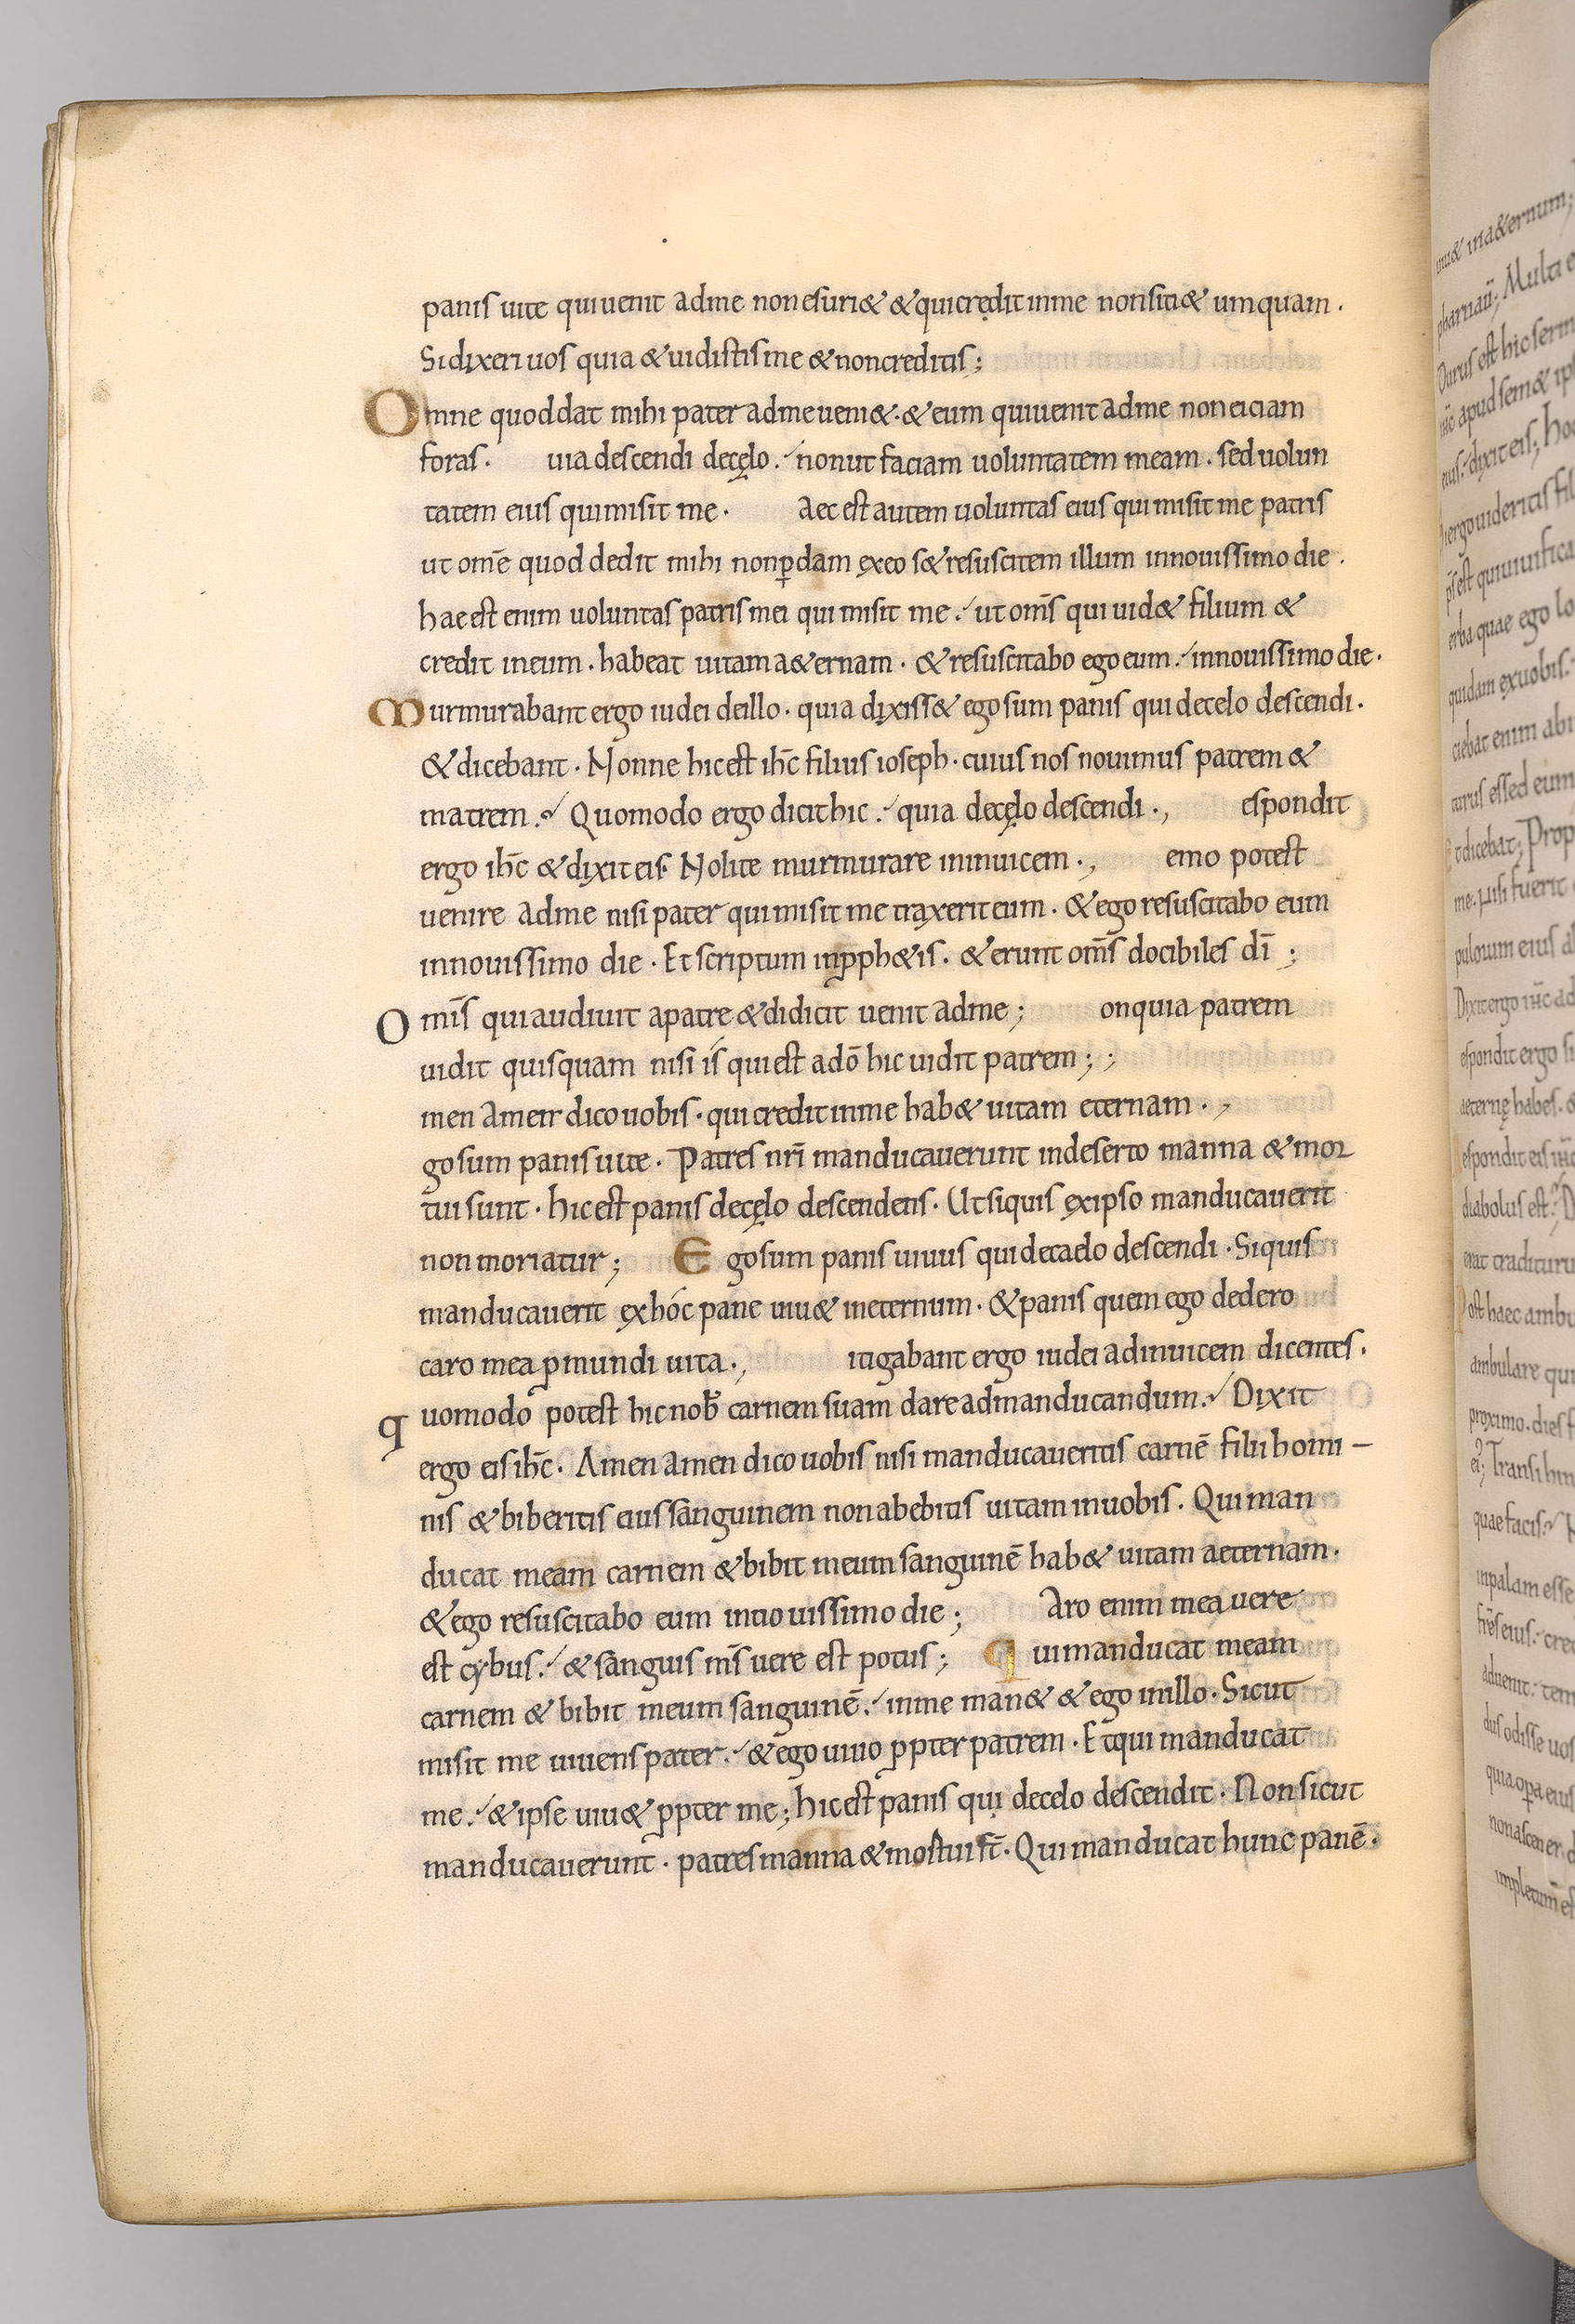 panis uite qui uenit ad me non esuri& & qui credit in me non siti& umquam.
Si dixeri uos quia & uidistis me & non creditis;
Omne quod dat mihi pater ad me ueni&. & eum qui uenit ad me non eiciam
foras. uia descendi de cęlo. non ut faciam uoluntatem meam. sed uolun
tatem eius qui misit me. aec est autem uoluntas eius qui misit me patris
ut om̄e quod dedit mihi non ꝑdam ex eo s& resuscitem illum in nouissimo die.
hae est enim uoluntas patris mei qui misit me. ut om̄s qui uid& filium &
credit in eum. habeat uitam a&ernam. & resuscitabo ego eum. in nouissimo die.
Murmurabant ergo iudei de illo. quia dixiss& ego sum panis qui de celo descendi.
& dicebant. Nonne hic est ih̄c filius ioseph. cuius nos nouimus patrem &
matrem. Quomodo ergo dicit hic. quia de cęlo descendi., espondit
ergo ih̄c & dixit eis. Nolite murmurare in inuicem., emo potest
uenire ad me nisi pater qui misit me traxerit eum. & ego resuscitabo eum
in nouissimo die. Et scriptum in ꝓph&is. & erunt om̄s docibiles dī;
O mīs qui audiuit a patre & didicit uenit ad me; on quia patrem
uidit quisquam nisi is qui est a dō hic uidit patrem;;
men amen dico uobis. qui credit in me hab& uitam eternam.,
go sum panis uite. Patres nr̄i manducauerunt in deserto manna & mor
tui sunt. hic est panis de cęlo descendens. Ut si quis ex ipso manducauerit
non moriatur; Ego sum panis uiuus qui de caelo descendi. Si quis
manducauerit ex hóc pane uiu& in eternum. & panis quem ego dedero
caro mea ꝓ mundi uita., itigabant ergo iudei ad inuicem dicentes.
q uomodo potest hic nob̄ carnem suam dare ad manducandum. Dixit
ergo eis ih̄c. Amen amen dico uobis nisi manducaueritis carnē filii homi-
nis & biberitis eius sanguinem non abebitis uitam in uobis. Qui man
ducat meam carnem & bibit meum sanguinē hab& uitam aeternam.
& ego resuscitabo eum in nouissimo die; Aro enim mea uere
est cybus. & sanguis m̄s uere est potus; qui manducat meam
carnem & bibit meum sanguinē. in me man& & ego in illo. Sicut
misit me uiuens pater. & ego uiuo ꝓpter patrem. Et qui manducat
me. & ipse uiu& ꝓpter me; hic est panis qui de celo descendit. Non sicut
manducauerunt. patres manna & mortui st̄. Qui manducat hunc panē.